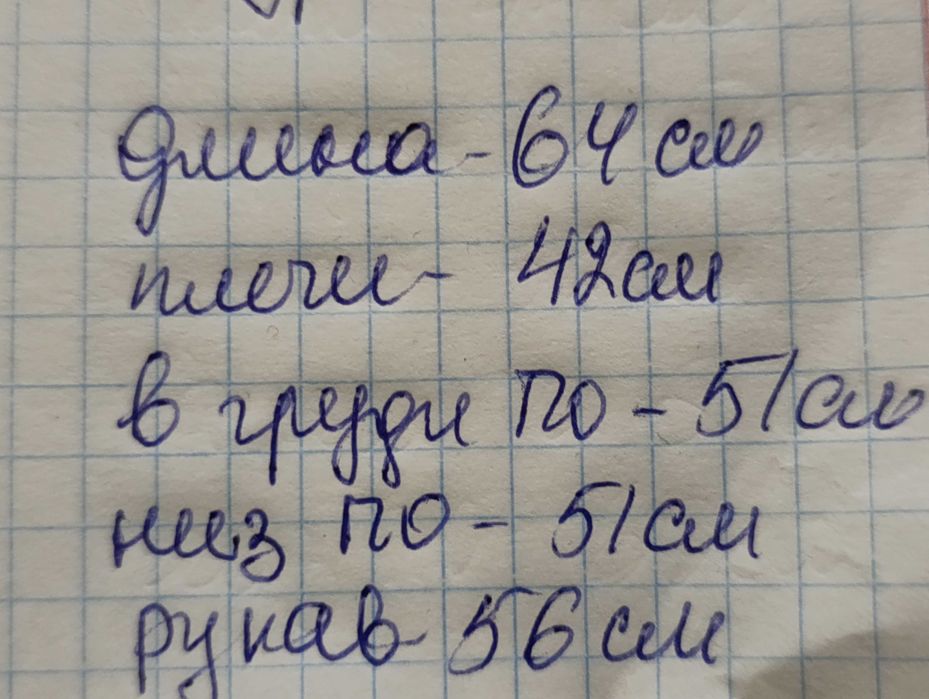 длина - 64 см
плечи - 42 см
в груди ПО - 51 см
низ ПО - 51 см
рукав - 56 см